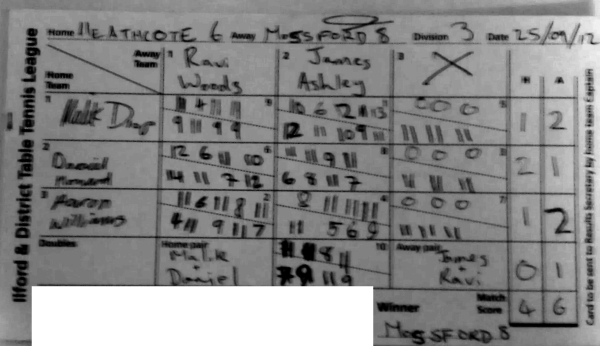 Ilford & District Table Tennis League
Home HEATHCOTE 6 Away MOSSFORD 8 Division 3 Date 25/09/12
Away Team 1 Ravi Woods 2 James Ashley 3 X H A
Home Team
1 Malik
9 11 9 9
12 11 10 9 11
0 0 0
11 11 11
1 2
2 Daniel
12 6 11 10
14 11 7 12
11 11 9 11
6 8 11 7
0 0 0
11 11 11
2 1
3 Aaron Williams
11 6 11 8 11
4 11 9 11 7
0 0 0
11 11 11
1 2
Doubles Home pair Malik Daniel
10
Away pair James Ravi
0 1
Winner MOSSFORD 8
Match Score 4 6
Card to be sent to Results Secretary by home team Captain